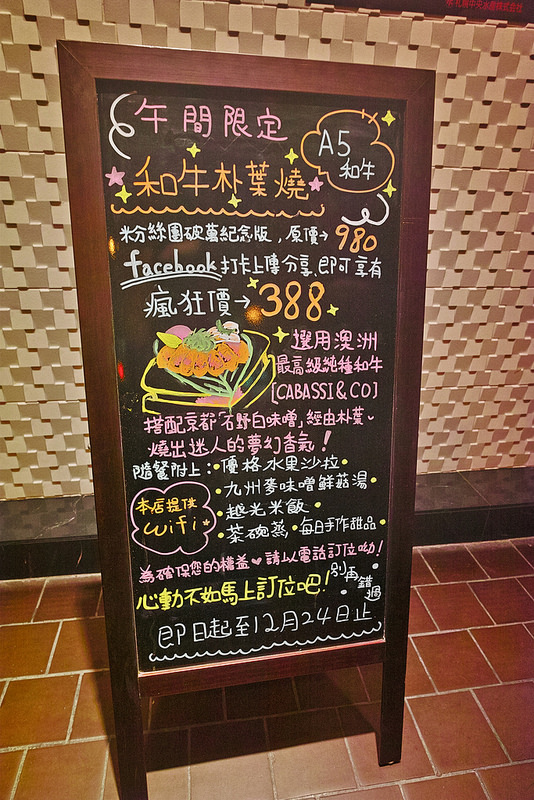 午間限定
A5
和牛
和牛朴葉燒
粉絲團破萬紀念版，原價→980
facebook打卡上傳分享、即可享有
瘋狂價→388
選用澳洲
最高級純種和牛
[CABASSI&CO]
搭配京都「石野白味噌」經由朴葉
燒出迷人的夢幻香氣！
隨餐附上：•優格水果沙拉•
•九州麥味噌鮮菇湯•
•越光米飯•
•茶碗蒸•每日手作甜品•
本店提供
wifi
為確保您的權益♥請以電話訂位呦！
心動不如馬上訂位吧！別再錯過
即日起至12月24日止